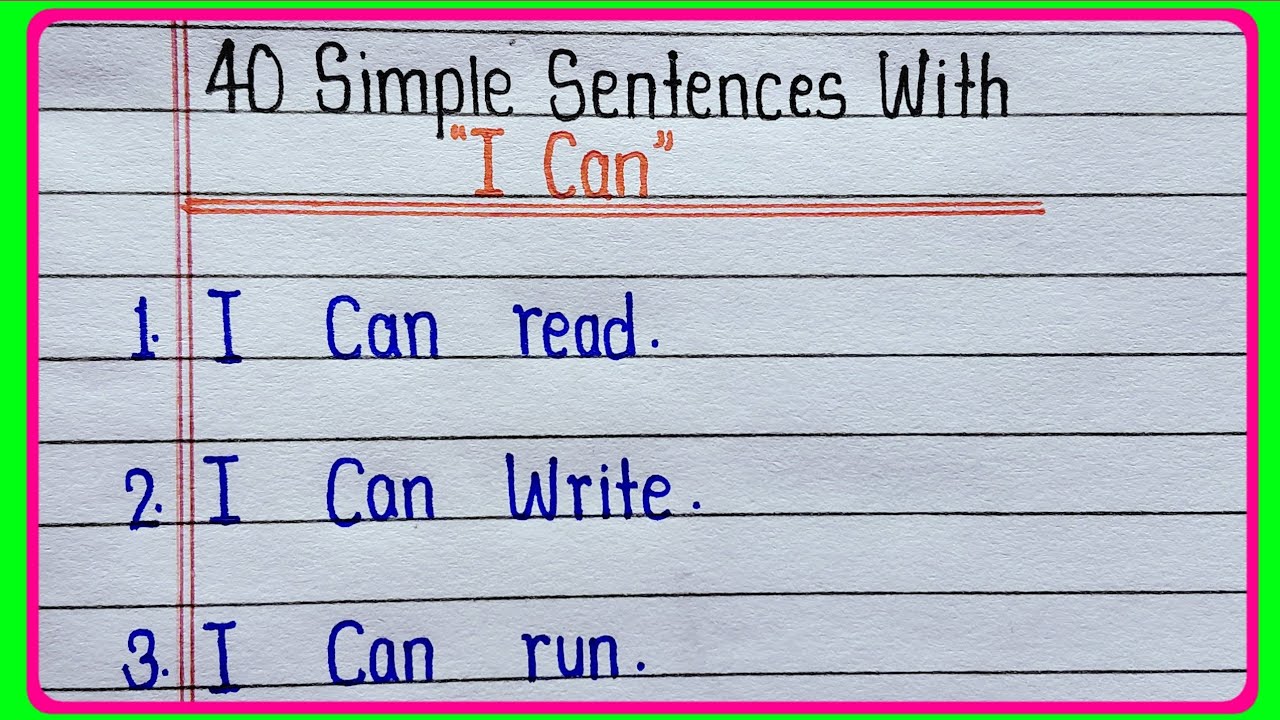 40 Simple Sentences With
"I Can"
1. I Can read.
2. I Can Write.
3. I Can run.